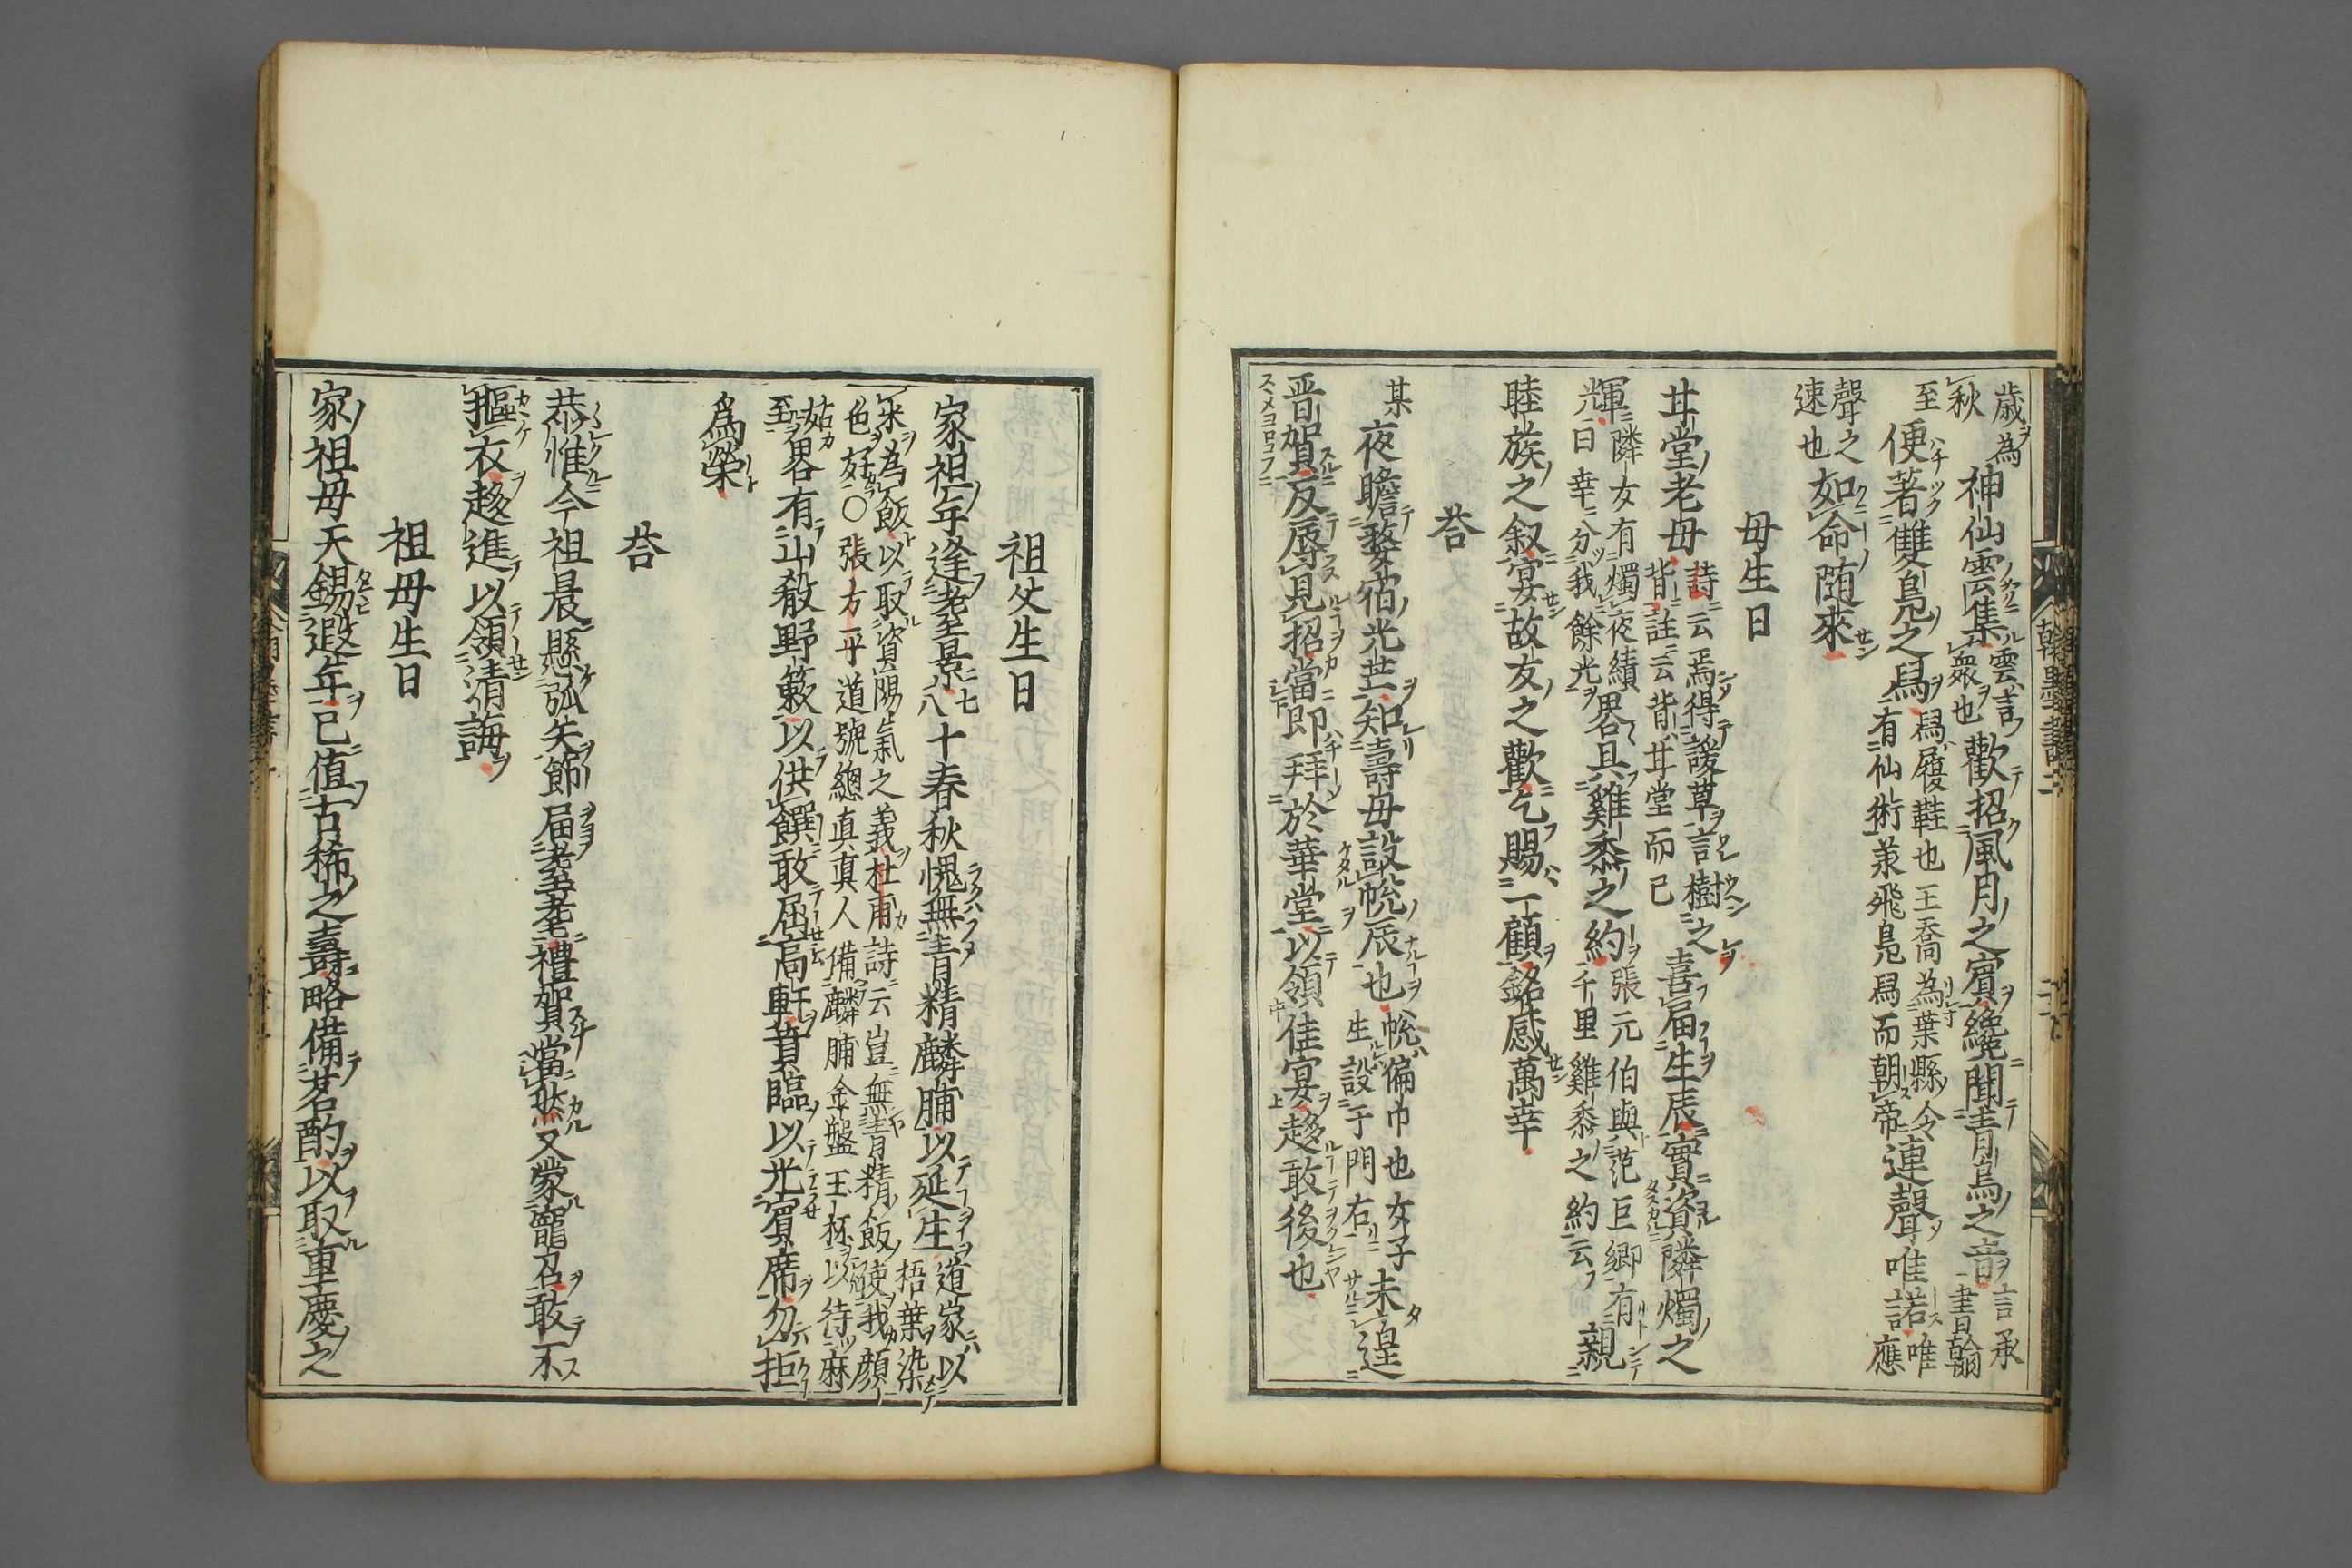 歳為神仙雲集雲言歡招風月之賓纔聞青鳥之音言承
秋衆也書翰
至便著雙鳬之舄舄履鞋也王喬為葉縣令連聲唯諾唯
有仙術乗飛鳬舄而朝帝應
聲之如命随來
速也
母生日
廿堂老母詩云焉得諼草言樹之喜届生辰實資隣燭之
背註云背廿堂而已
輝隣女有燭夜績畧具雞黍之約張元伯與范巨卿有親
光曰幸分我餘光千里雞黍之約云
睦族之叙宴故友之歡乞賜一顧銘感萬幸
荅
某夜瞻婺宿光芒知壽母設帨辰也帨偏巾也女子未遑
生設于門右
晋賀反辱見招當即拜於華堂以領佳宴趍敢後也
祖父生日
家祖年逢耋景七十春秋愧無青精麟脯以延生道家以
八梧葉染
米為飯以取資陽氣之義杜甫詩云豈無青精飯使我顔
色好○張方平道號總真真人備麟脯金盤玉杯以待麻
姑畧有山殽野簌以供饌敢屈高軒賁臨以光賓席勿拒
至
爲榮
荅
恭惟今祖晨懸弧矢節届耋耄禮賀當然又蒙寵召敢不
摳衣趍進以領清誨
祖母生日
家祖母天錫遐年已値古稀之壽略備茗酌以取重慶之